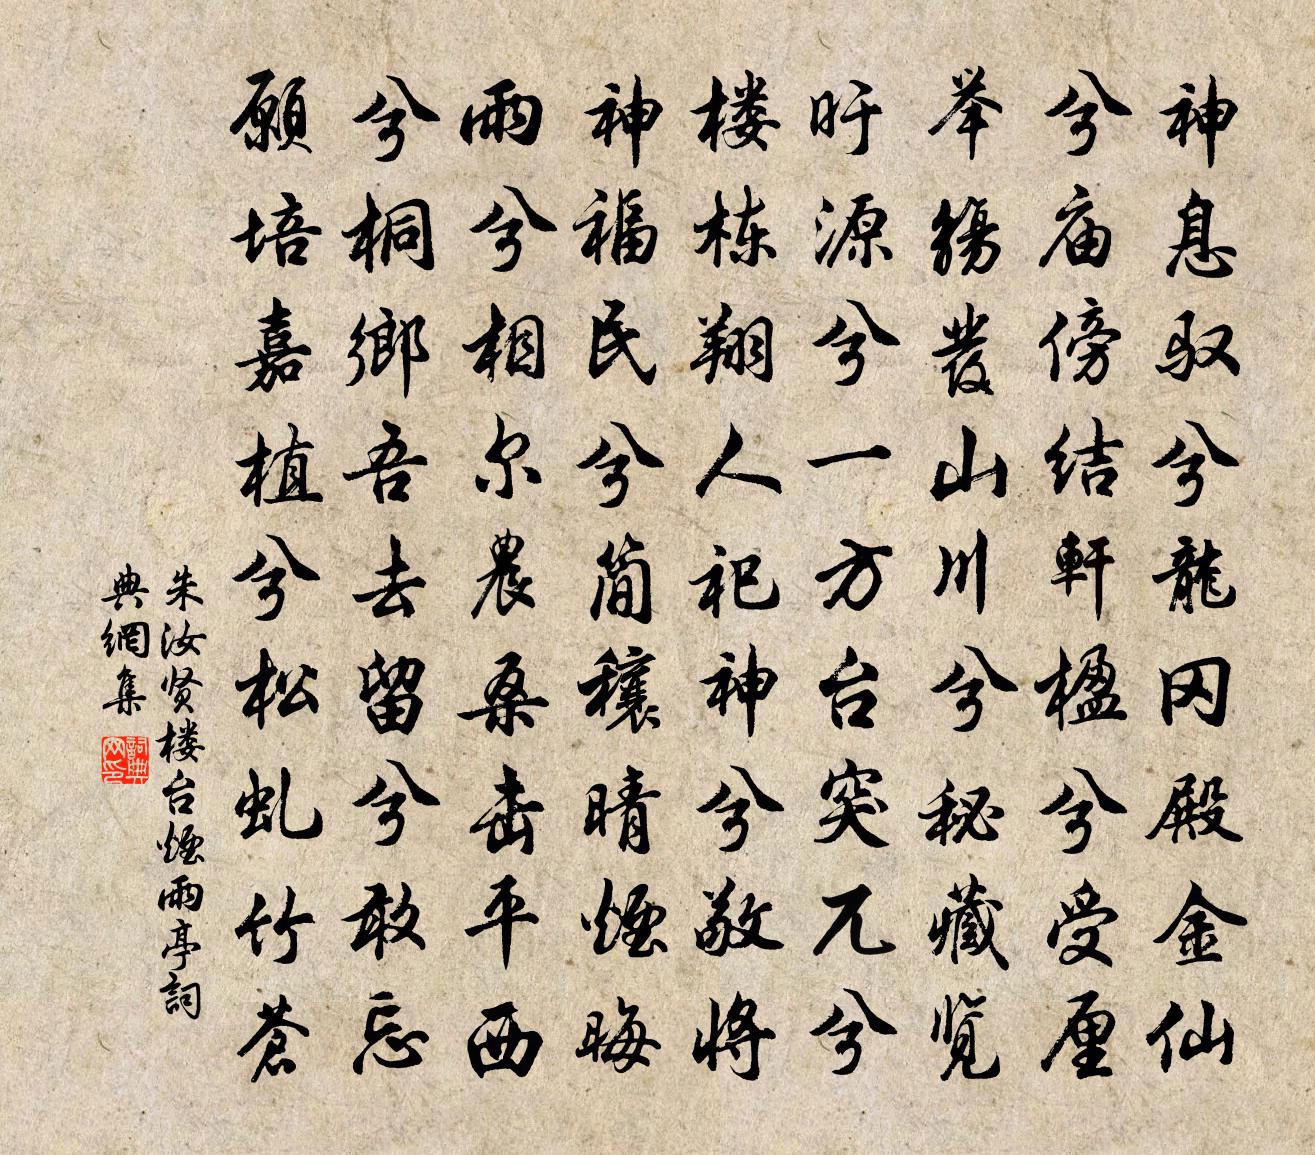 神息驭兮龍冈殿金仙
兮庙傍结軒楹兮受厘
举觴發山川兮秘藏览
盱源兮一方台突兀兮
楼栋翔人祀神兮敬将
神福民兮简穰晴煙晦
雨兮相尔農桑击平西
兮桐鄉吾去留兮敢忘
願培嘉植兮松虬竹苍
朱汝贤楼台煙雨亭詞
典網集
詞典網印